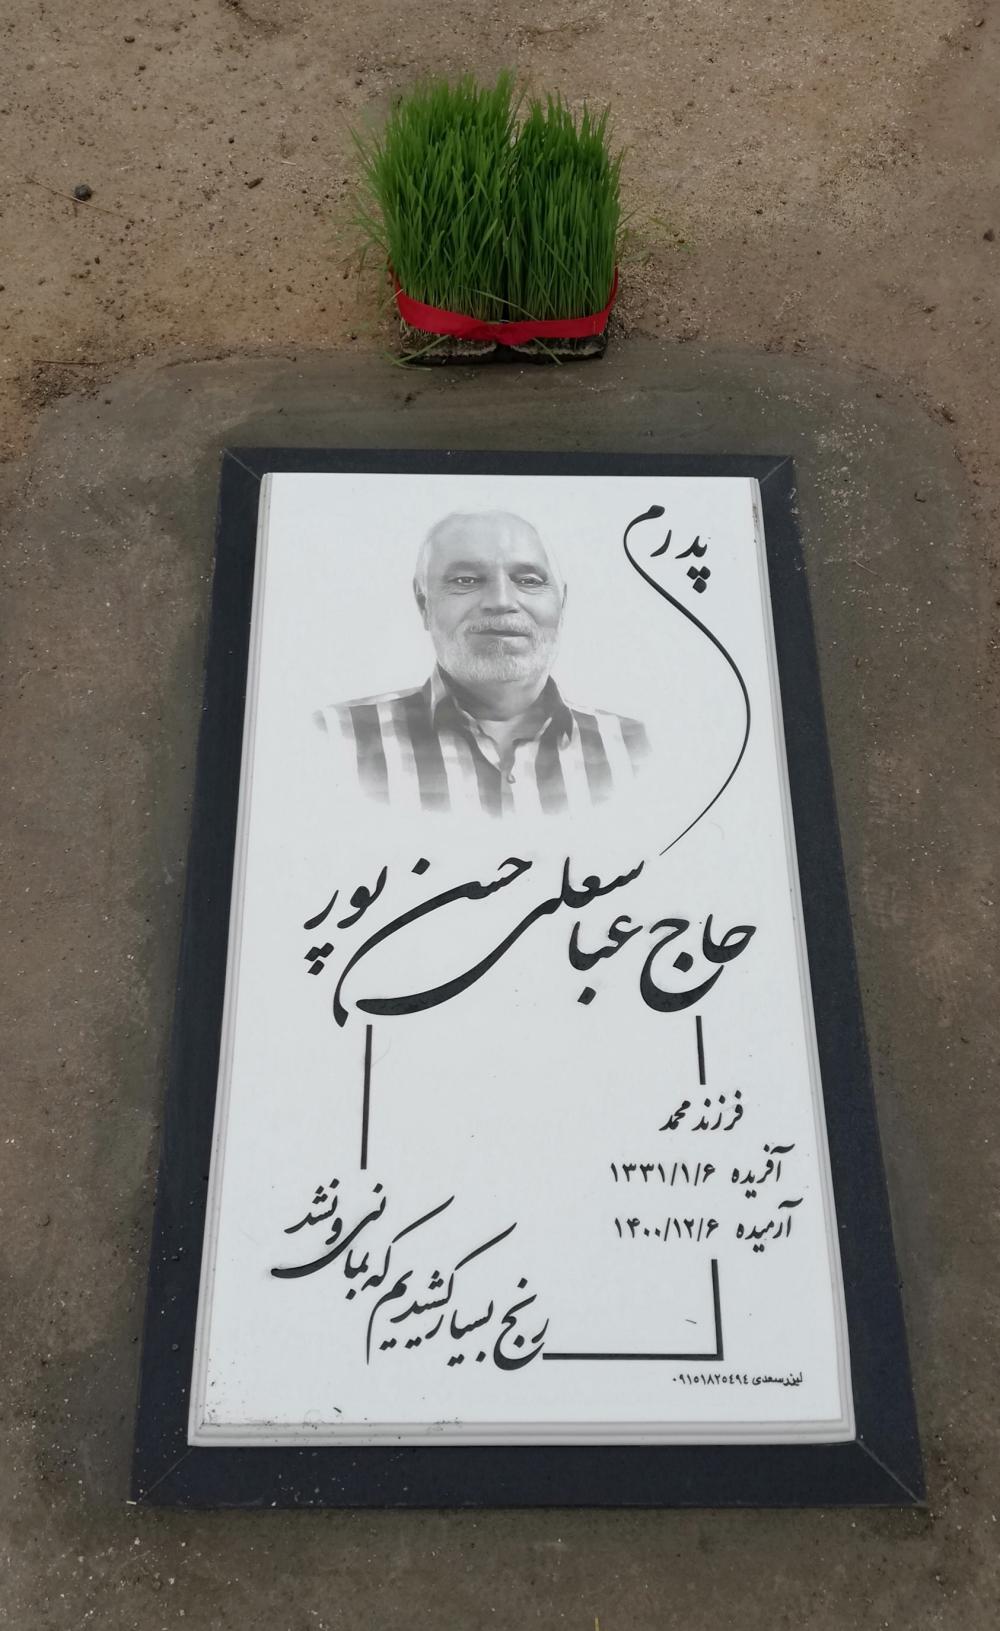 پدرم
حاج عباسعلی حسن پور
فرزند محمد
آفریده ۱۳۳۱/۱/۶
آرمیده ۱۴۰۰/۱۲/۶
رنج بسیار کشیدیم که بمانی و نشد
لیزر سعدی ۰۹۱۵۱۸۲۵۴۹۴